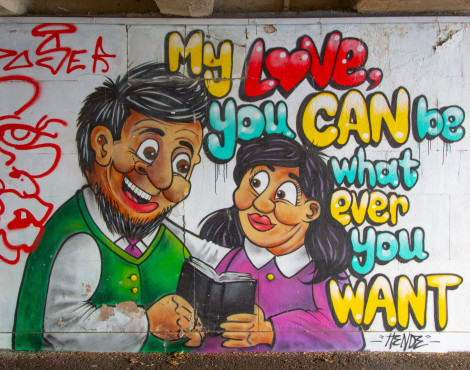 My LOVE,
you CAN be
what
ever
you
WANT
- HENDE -